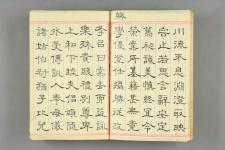 川流不息淵澄取映
容止若思言辭安定
篤初誠美慎終宜令
榮業所基籍甚無竟
學優登仕攝職從政
存以甘棠去而益詠
樂殊貴賤禮別尊卑
上和下睦夫唱婦隨
外受傅訓入奉母儀
諸姑伯叔猶子比兒